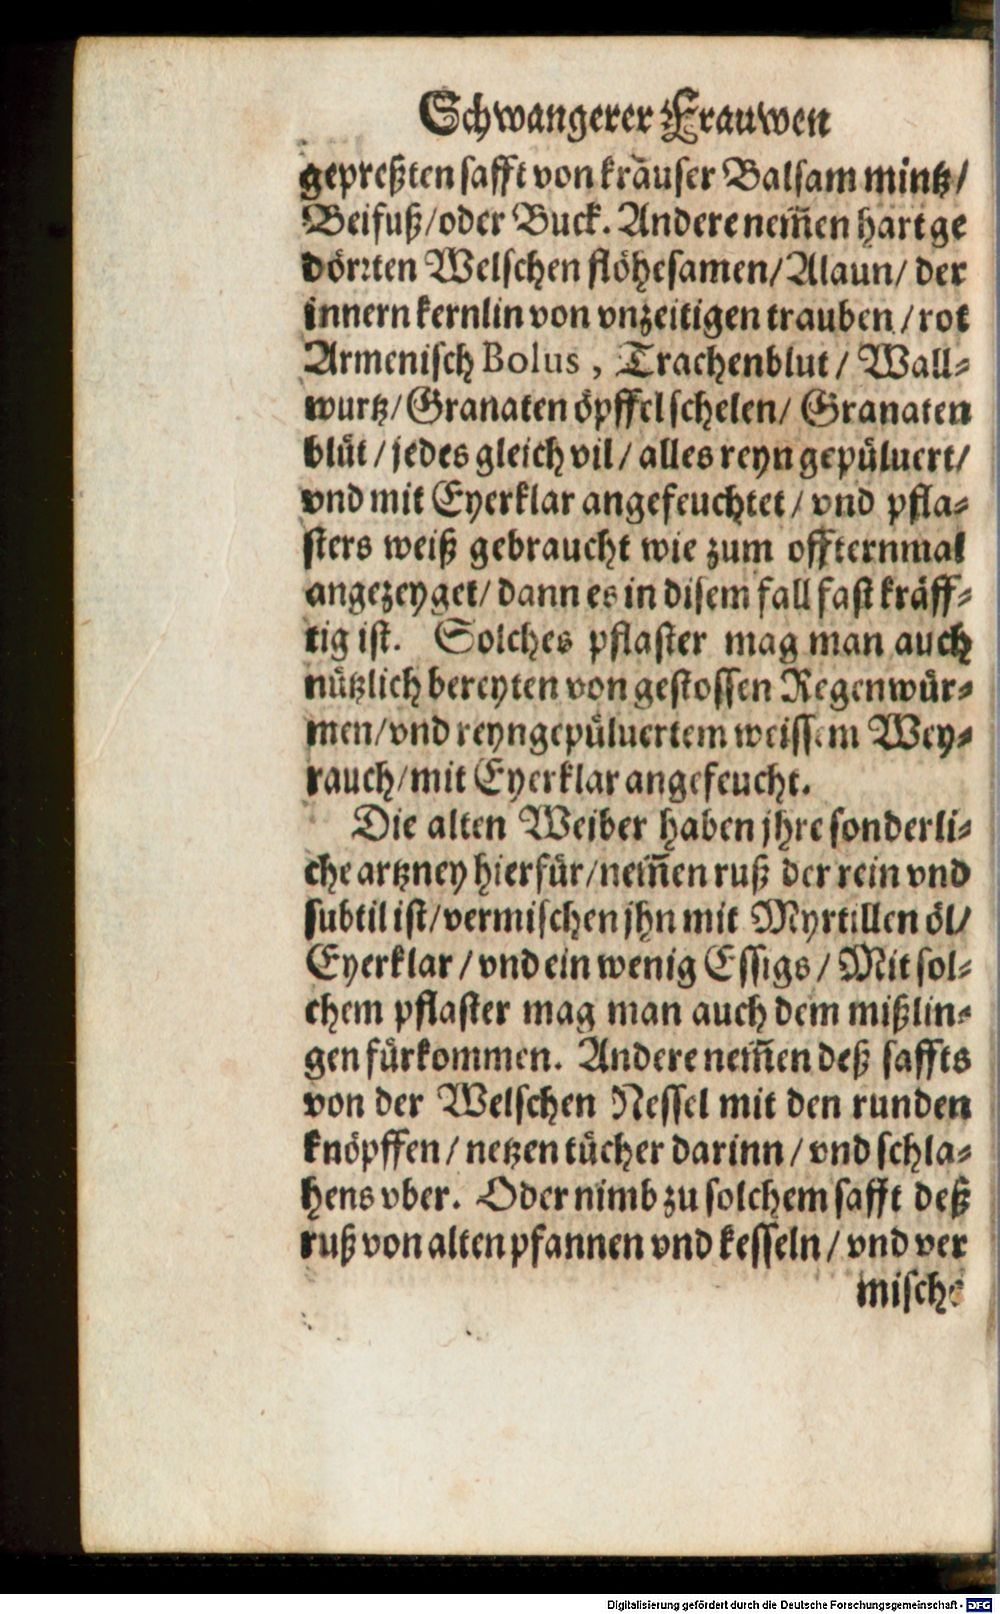 Schwangerer Frauwen
gepreßten safft von krauser Balsam mintz/
Beifuß/oder Buck. Andere nem̃en hart ge
dörꝛten Welschen flöhesamen/Alaun/ der
innern kernlin von vnzeitigen trauben/rot
Armenisch Bolus, Trachenblut/ Wall⸗
wurtz/Granaten öpffel schelen/ Granaten
blüt/jedes gleich vil/alles reyn gepüluert/
vnd mit Eyerklar angefeuchtet/ vnd pfla⸗
sters weiß gebraucht wie zum offternmal
angezeyget/dann es in disem fall fast kräff⸗
tig ist. Solches pflaster mag man auch
nützlich bereyten von gestossen Regenwür⸗
men/vnd reyngepüluertem weissem Wey⸗
rauch/mit Eyerklar angefeucht.
Die alten Weiber haben jhre sonderli⸗
che artzney hierfür/nem̃en ruß der rein vnd
subtil ist/vermischen jhn mit Myrtillen öl/
Eyerklar/vnd ein wenig Essigs/ Mit sol⸗
chem pflaster mag man auch dem mißlin⸗
gen fürkommen. Andere nem̃en deß saffts
von der Welschen Nessel mit den runden
knöpffen/netzen tücher darinn/vnd schla⸗
hens vber. Oder nimb zu solchem safft deß
ruß von alten pfannen vnd kesseln/vnd ver
mische
Digitalisierung gefördert durch die Deutsche Forschungsgemeinschaft - DFG